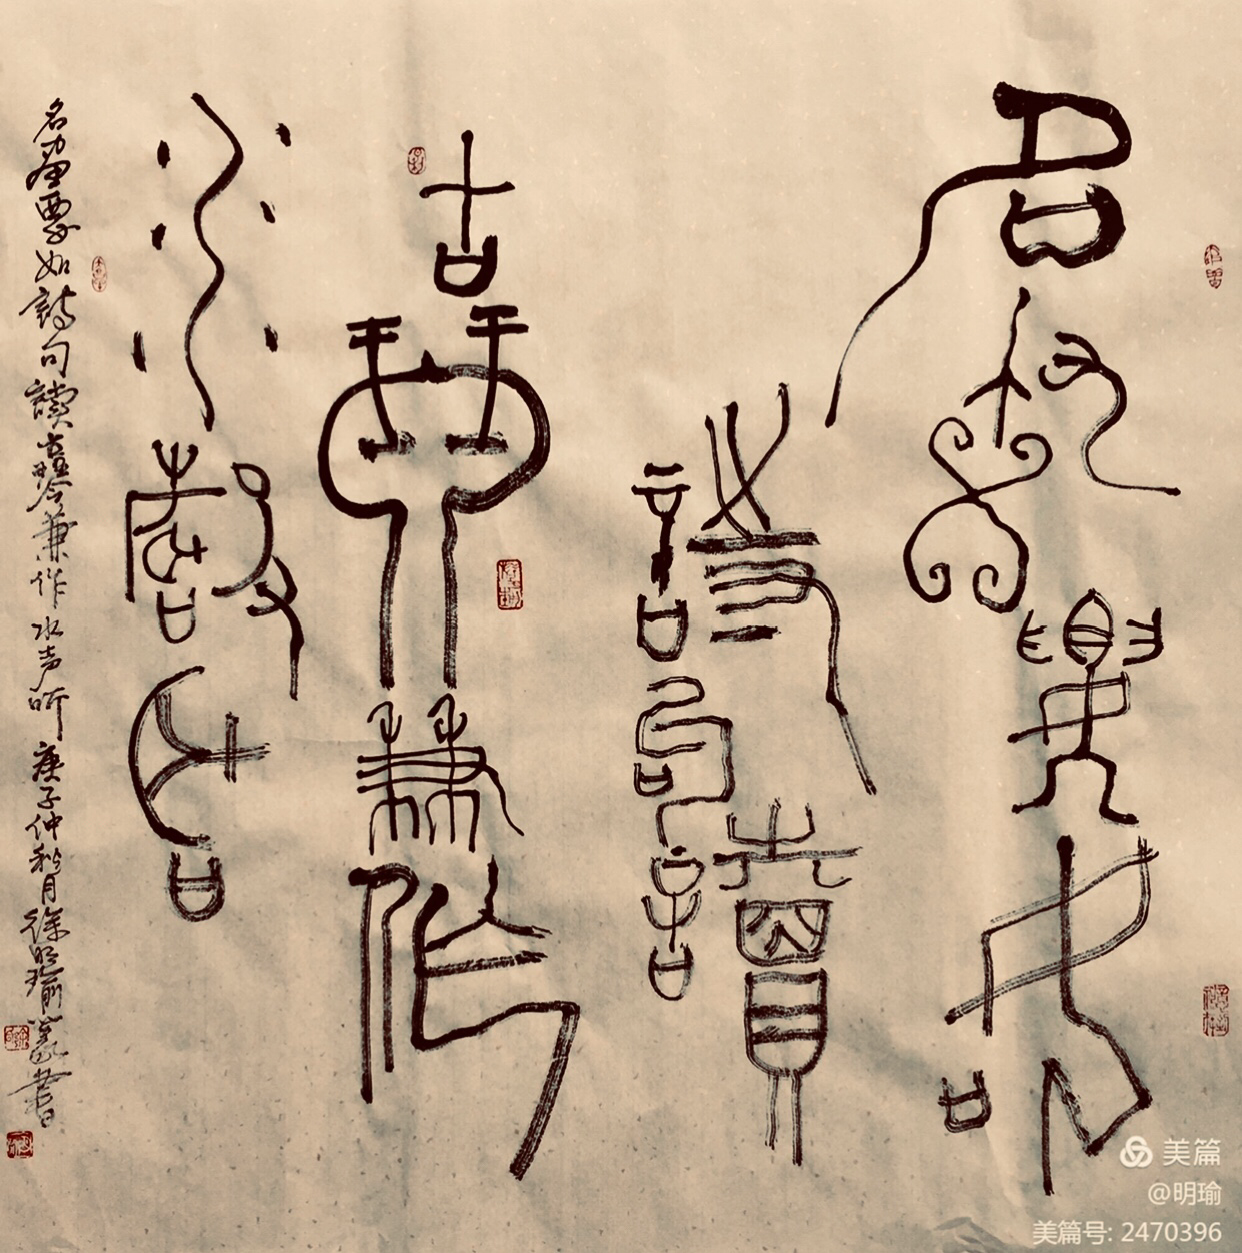 名畫要如
詩句讀
古琴兼作
水聲听
名畫要如詩句讀古琴兼作水声听 庚子仲秋月徐明瑜篆書
美篇
@明瑜
美篇号: 2470396